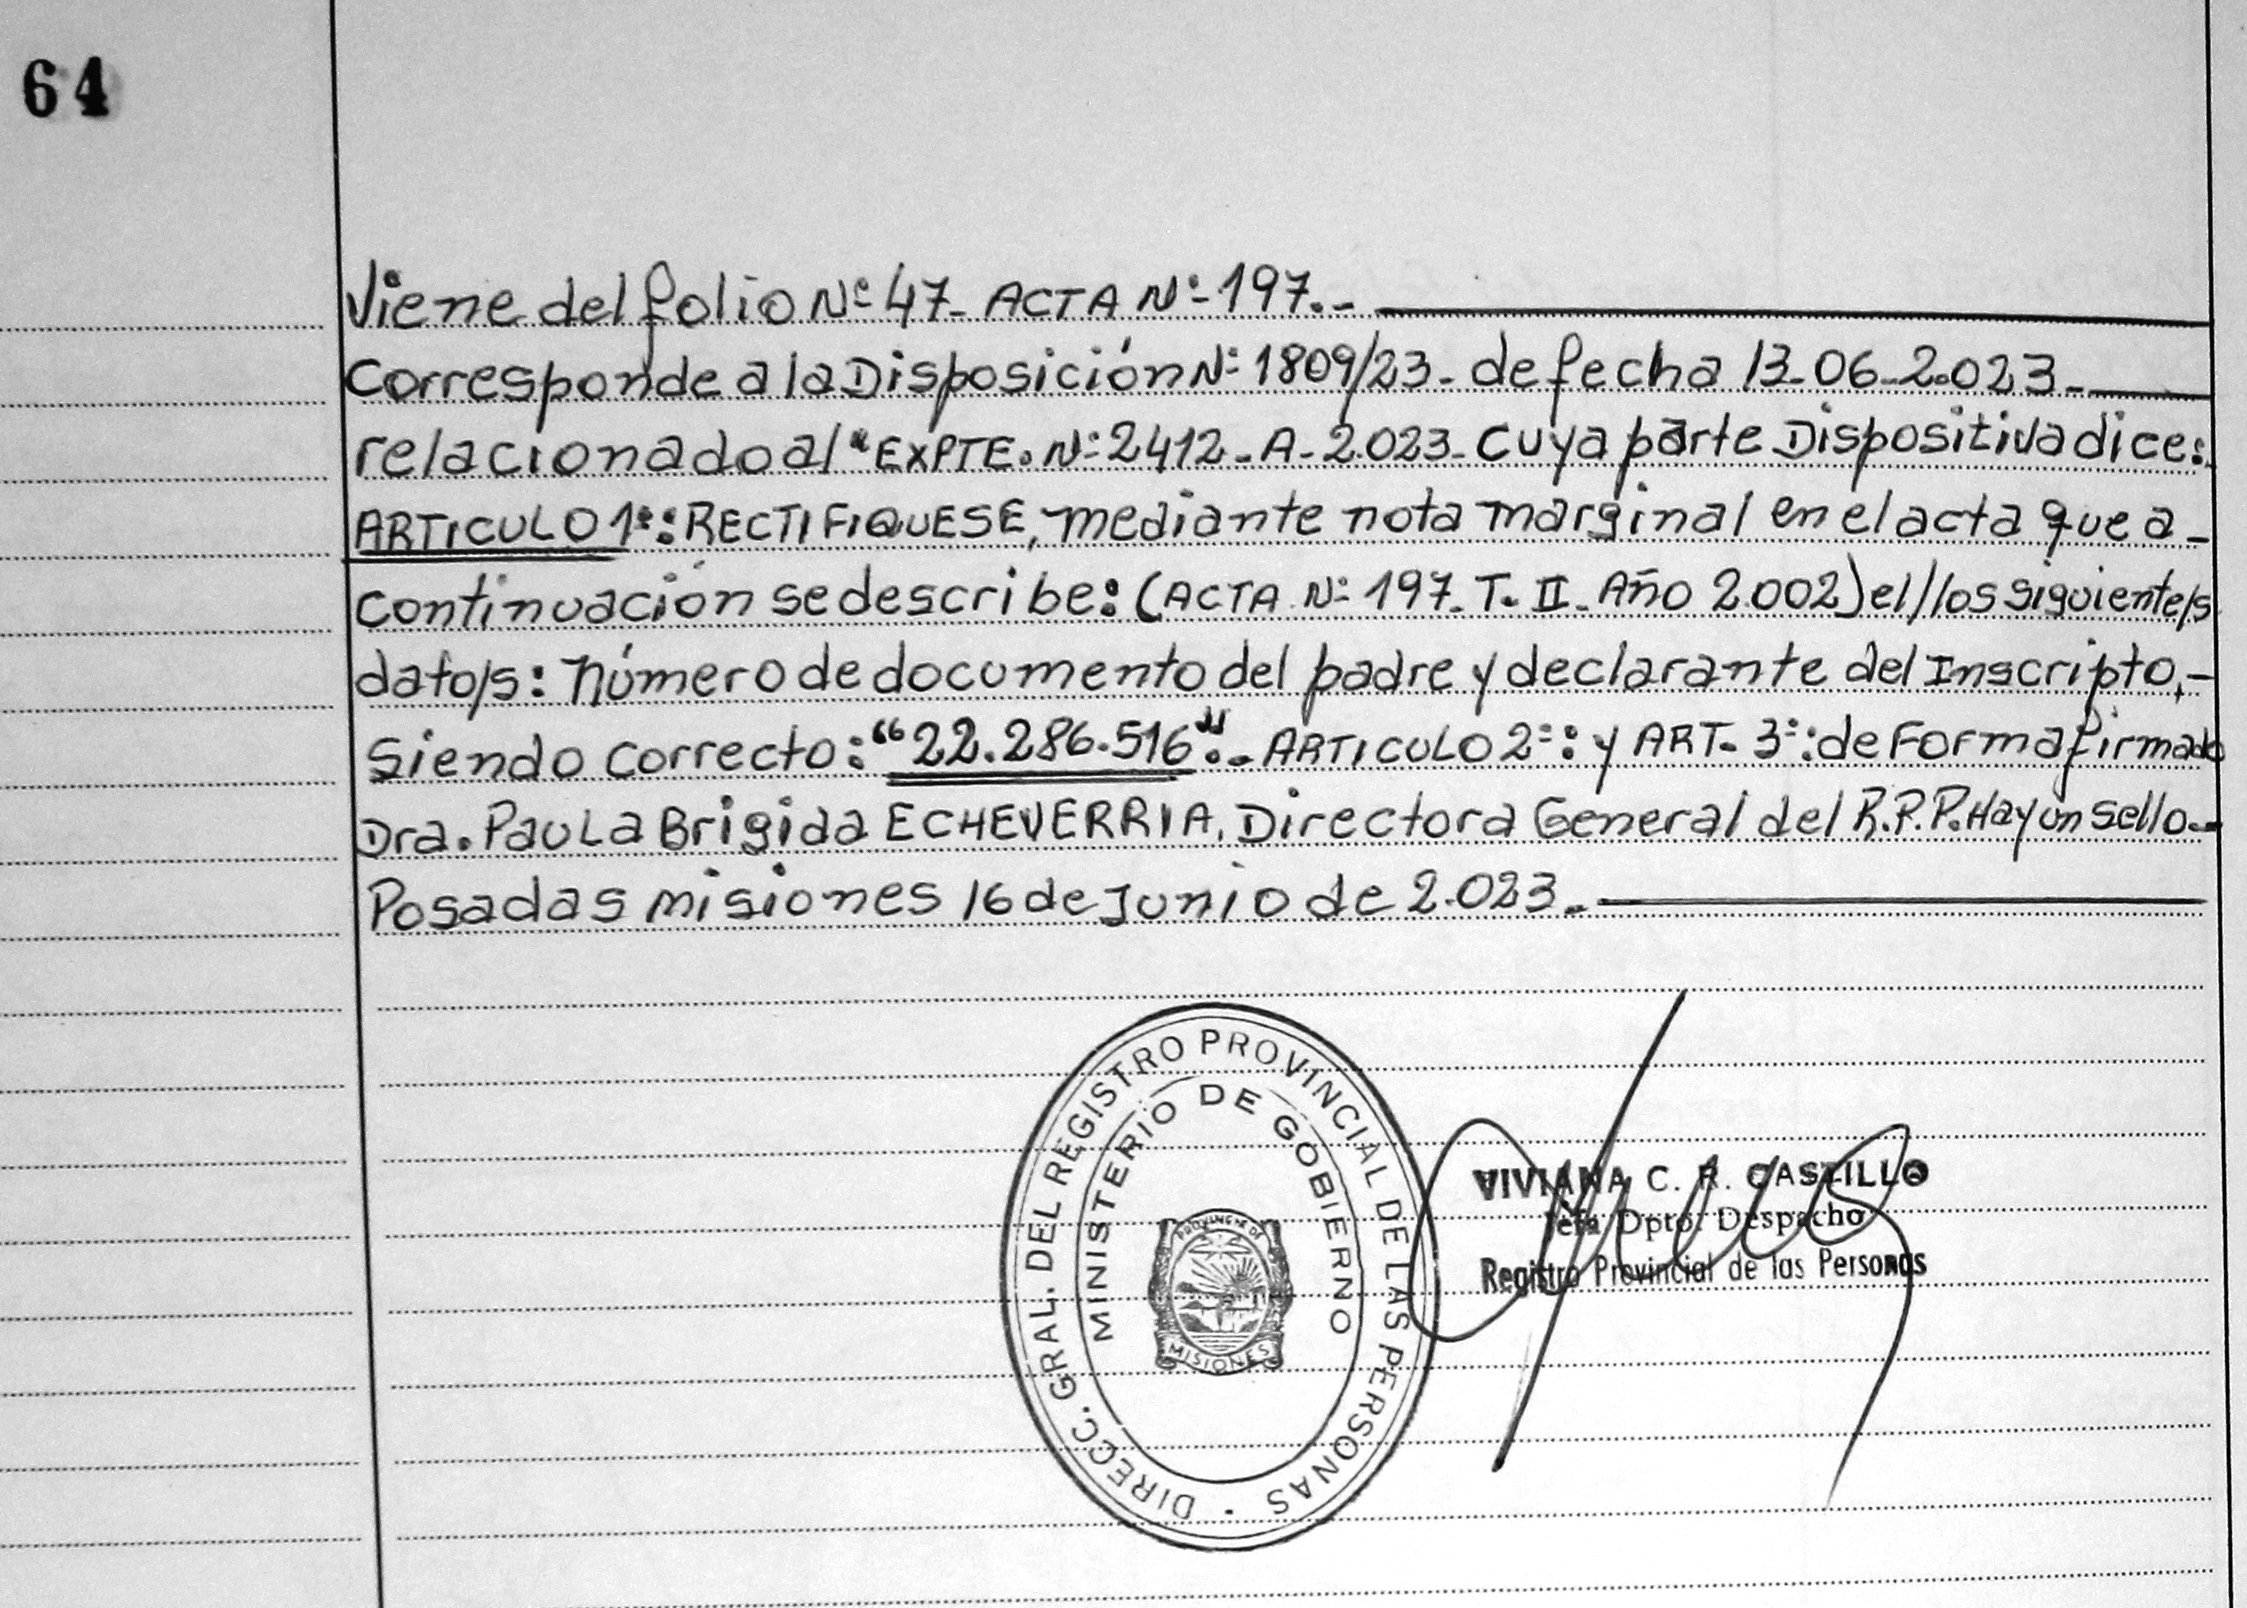 64
Viene del folio Nº 47- ACTA Nº 197.-
Corresponde a la Disposición Nº 1809/23- de fecha 13-06-2.023-
relacionado al "EXPTE. Nº 2412-A-2.023- Cuya parte Dispositiva dice:
ARTICULO 1º: RECTIFIQUESE, mediante nota marginal en el acta que a-
continuación se describe: (ACTA Nº 197- T. II- Año 2.002) el/los siguiente/s
dato/s: número de documento del padre y declarante del Inscripto,-
siendo correcto: "22.286.516".- ARTICULO 2º: y ART. 3º: de Forma firmado
Dra. PAULA Brigida ECHEVERRIA, Directora General del R.P.P. Hay un sello.-
Posadas misiones 16 de Junio de 2.023.-
DIRECC. GRAL. DEL REGISTRO PROVINCIAL DE LAS PERSONAS -
MINISTERIO DE GOBIERNO
PROVINCIA DE
MISIONES
VIVIANA C. R. CASTILLO
Jefa Dpto. Despacho
Registro Provincial de las Personas